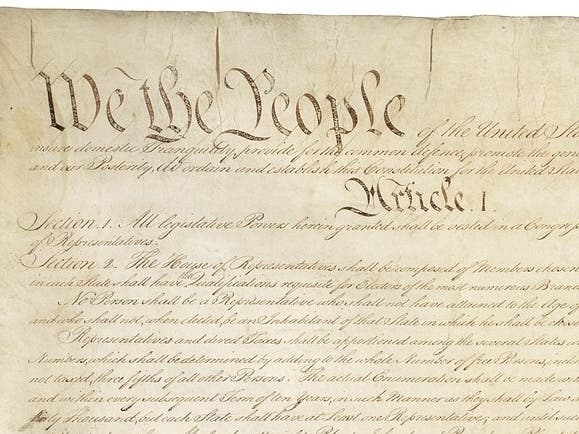 We the People of the United Sta
insure domestic Tranquility, provide for the common defence, promote the gen
and our Posterity, do ordain and establish this Constitution for the United Stat
Article. I.
Section. 1. All legislative Powers herein granted shall be vested in a Congre
of Representatives.
Section. 2. The House of Representatives shall be composed of Members chosen
in each State shall have the Qualifications requisite for Electors of the most numerous Branch
No Person shall be a Representative who shall not have attained to the Age of
and who shall not, when elected, be an Inhabitant of that State in which he shall be chose
Representatives and direct Taxes shall be apportioned among the several States w
Numbers, which shall be determined by adding to the whole Number of free Persons, inclu
not taxed, three fifths of all other Persons. The actual Enumeration shall be made w
and within every subsequent Term of ten Years, in such Manner as they shall by Law d
thirty Thousand, but each State shall have at Least one Representative; and until suc